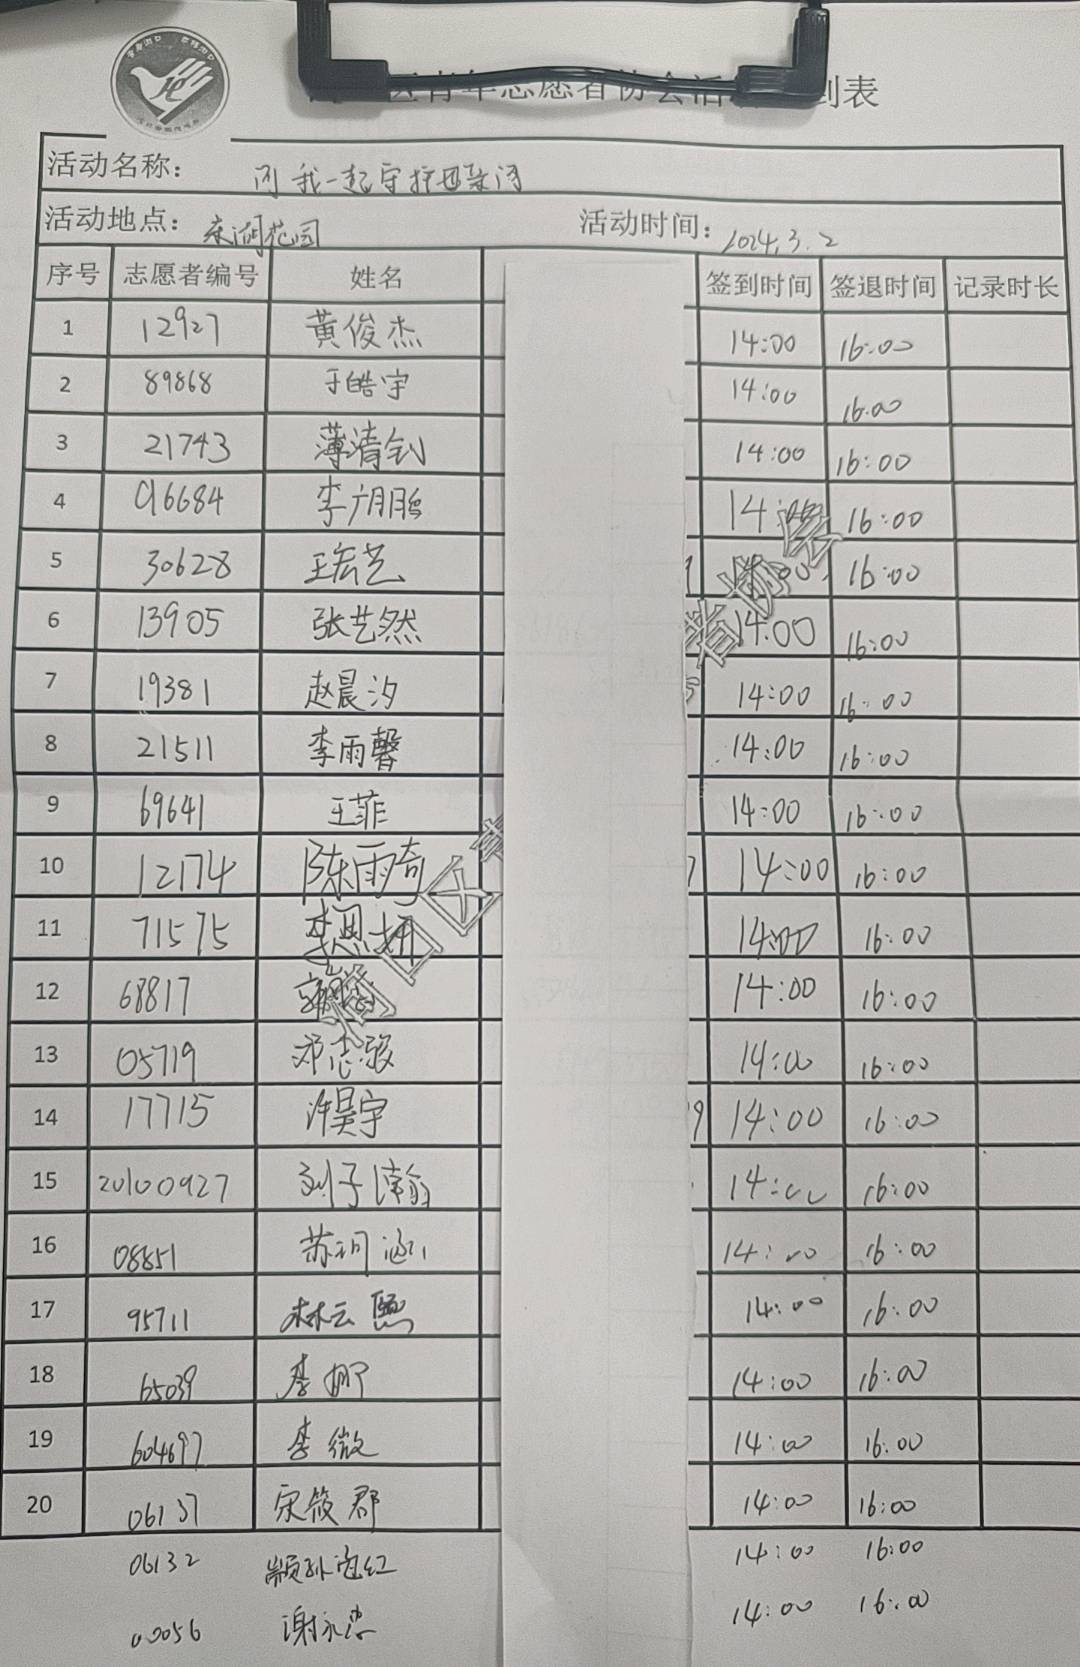 区青年志愿者协会活 到表
活动名称： 同我一起守护母亲河
活动地点： 东湖花园 活动时间： 2024.3.2
序号 志愿者编号 姓名 签到时间 签退时间 记录时长
1 12927 黄俊杰 14:00 16:00
2 89868 于皓宇 14:00 16:00
3 21743 薄清钊 14:00 16:00
4 96684 李广鹏 14:00 16:00
5 30628 王宏艺 14:00 16:00
6 13905 张艺然 14:00 16:00
7 19381 赵晨汐 14:00 16:00
8 21511 李雨馨 14:00 16:00
9 69641 王菲 14:00 16:00
10 12174 陈雨奇 14:00 16:00
11 71575 李思妍 14:00 16:00
12 68817 14:00 16:00
13 05719 邓志骏 14:00 16:00
14 17715 许昊宇 14:00 16:00
15 20100927 刘子瀚 14:00 16:00
16 08851 苏玥涵 14:00 16:00
17 95711 林云 14:00 16:00
18 65039 李娜 14:00 16:00
19 604697 李微 14:00 16:00
20 06137 宋筱郡 14:00 16:00
06132 颛孙海红 14:00 16:00
00056 谢永忠 14:00 16:00